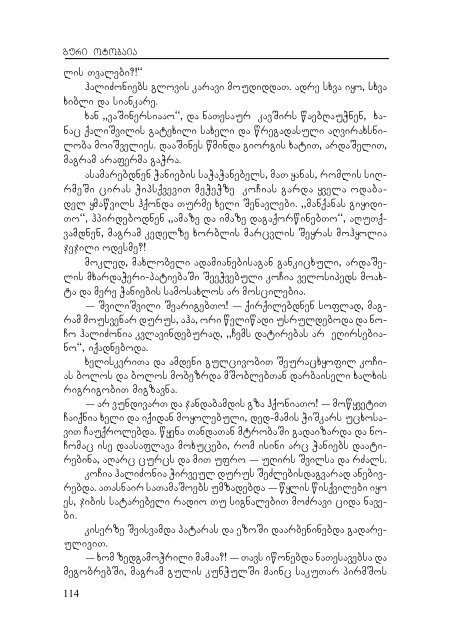 გური ოტობაია
ლის თვალები?!“
ჰალიძონიებს გლოვის კარავი მოუდიდდათ. ადრე სხვა იყო, სხვა
ხიბლი და სიანკარე.
ხან „ვაშინერსიააო“, და ნათესაურ კავშირს წაებღაუჭნენ, ხა-
ნაც ქალიშვილის გატეხილი სახელი და წრეგადასული აღვირახსნი-
ლობა მოიშველიეს. დააშინეს წმინდა გიორგის ხატით, არდაშელით,
მაგრამ არაფერმა გაჭრა.
ასამარებდნენ ჭანიების საჭაჭანებელს, მათ ყანას, რომლის სიღ-
რმეში ცირას ჭიპსქვევით მეჭეჭზე კოჩიას გარდა ყველა ოდაბა-
დელ ყმაწვილს ჰქონდა თურმე ხელი შენავლები. „მანქანას გიყიდი-
თო“, ჰპირდებოდნენ „ამაზე და იმაზე დაგაქორწინებთო“, აღუთქ-
ვამდნენ, მაგრამ კედელზე ხორბლის მარცვლის შეყრას მოჰყოლია
ჯეჯილი ოდესმე?!
მოკლედ, მახლობელი ადამიანებისაგან განკიცხული, არდაშე-
ლის მხარდაჭერი-პატიებაში შეეჭვებული კოჩია ველოსიპედს მოახ-
ტა და მერე ჭანიების სამოსახლოს არ მოსცილებია.
— შვილიშვილი შეარიგებთო! — ქირქილებდნენ სოფლად, მაგ-
რამ მოუსვენარ დურუს, აჰა, ორი წელიწადი უსრულდებოდა და ნო-
ჩო ჰალიძონია კვლავინდებურად, „ჩემს დატირებას არ ეღირსებია-
ნო“, იქადნებოდა.
ხელისკვრითა და ამდენი გულცივობით შეურაცხყოფილ კოჩი-
ას ბოლოს და ბოლოს მობეზრდა მშობლებთან დარბაისელი ხალხის
რიგრიგობით მიგზავნა.
— არ ვუნდივართ და ჯანდაბამდის გზა ჰქონიათო! — მოწყვეტით
ჩაიქნია ხელი და იქიდან მოყოლებული, დედ-მამის ჭიშკარს უცხოსა-
ვით ჩაუქროლებდა. წყენა თანდათან მტრობაში გადაიზარდა და ნო-
ჩომაც ისე დაასაფლავა მოხუცები, რომ ისინი არც ჭანიებს დაატი-
რებინა, აღარც ცურცს და მით უფრო — უღირს შვილსა და რძალს.
კოჩია ჰალიძონია ჭირვეულ დურუს შეძლებისდაგვარად ანებივ-
რებდა. ათასნაირ სათამაშოებს უმზადებდა — წყლის წისქვილები იყო
ეს, ჯიბის სატარებელი რადიო თუ სიგნალებით მოძრავი ციდა ნავე-
ბი.
კისერზე შეისვამდა პატარას და ეზოში დაარბენინებდა გადარე-
ულივით.
— ხომ ზედგამოჭრილი მამაა?! — თავს იწონებდა ნათესავებსა და
მეგობრებში, მაგრამ გულის კუნჭულში მაინც საკუთარ პირმშოს
114